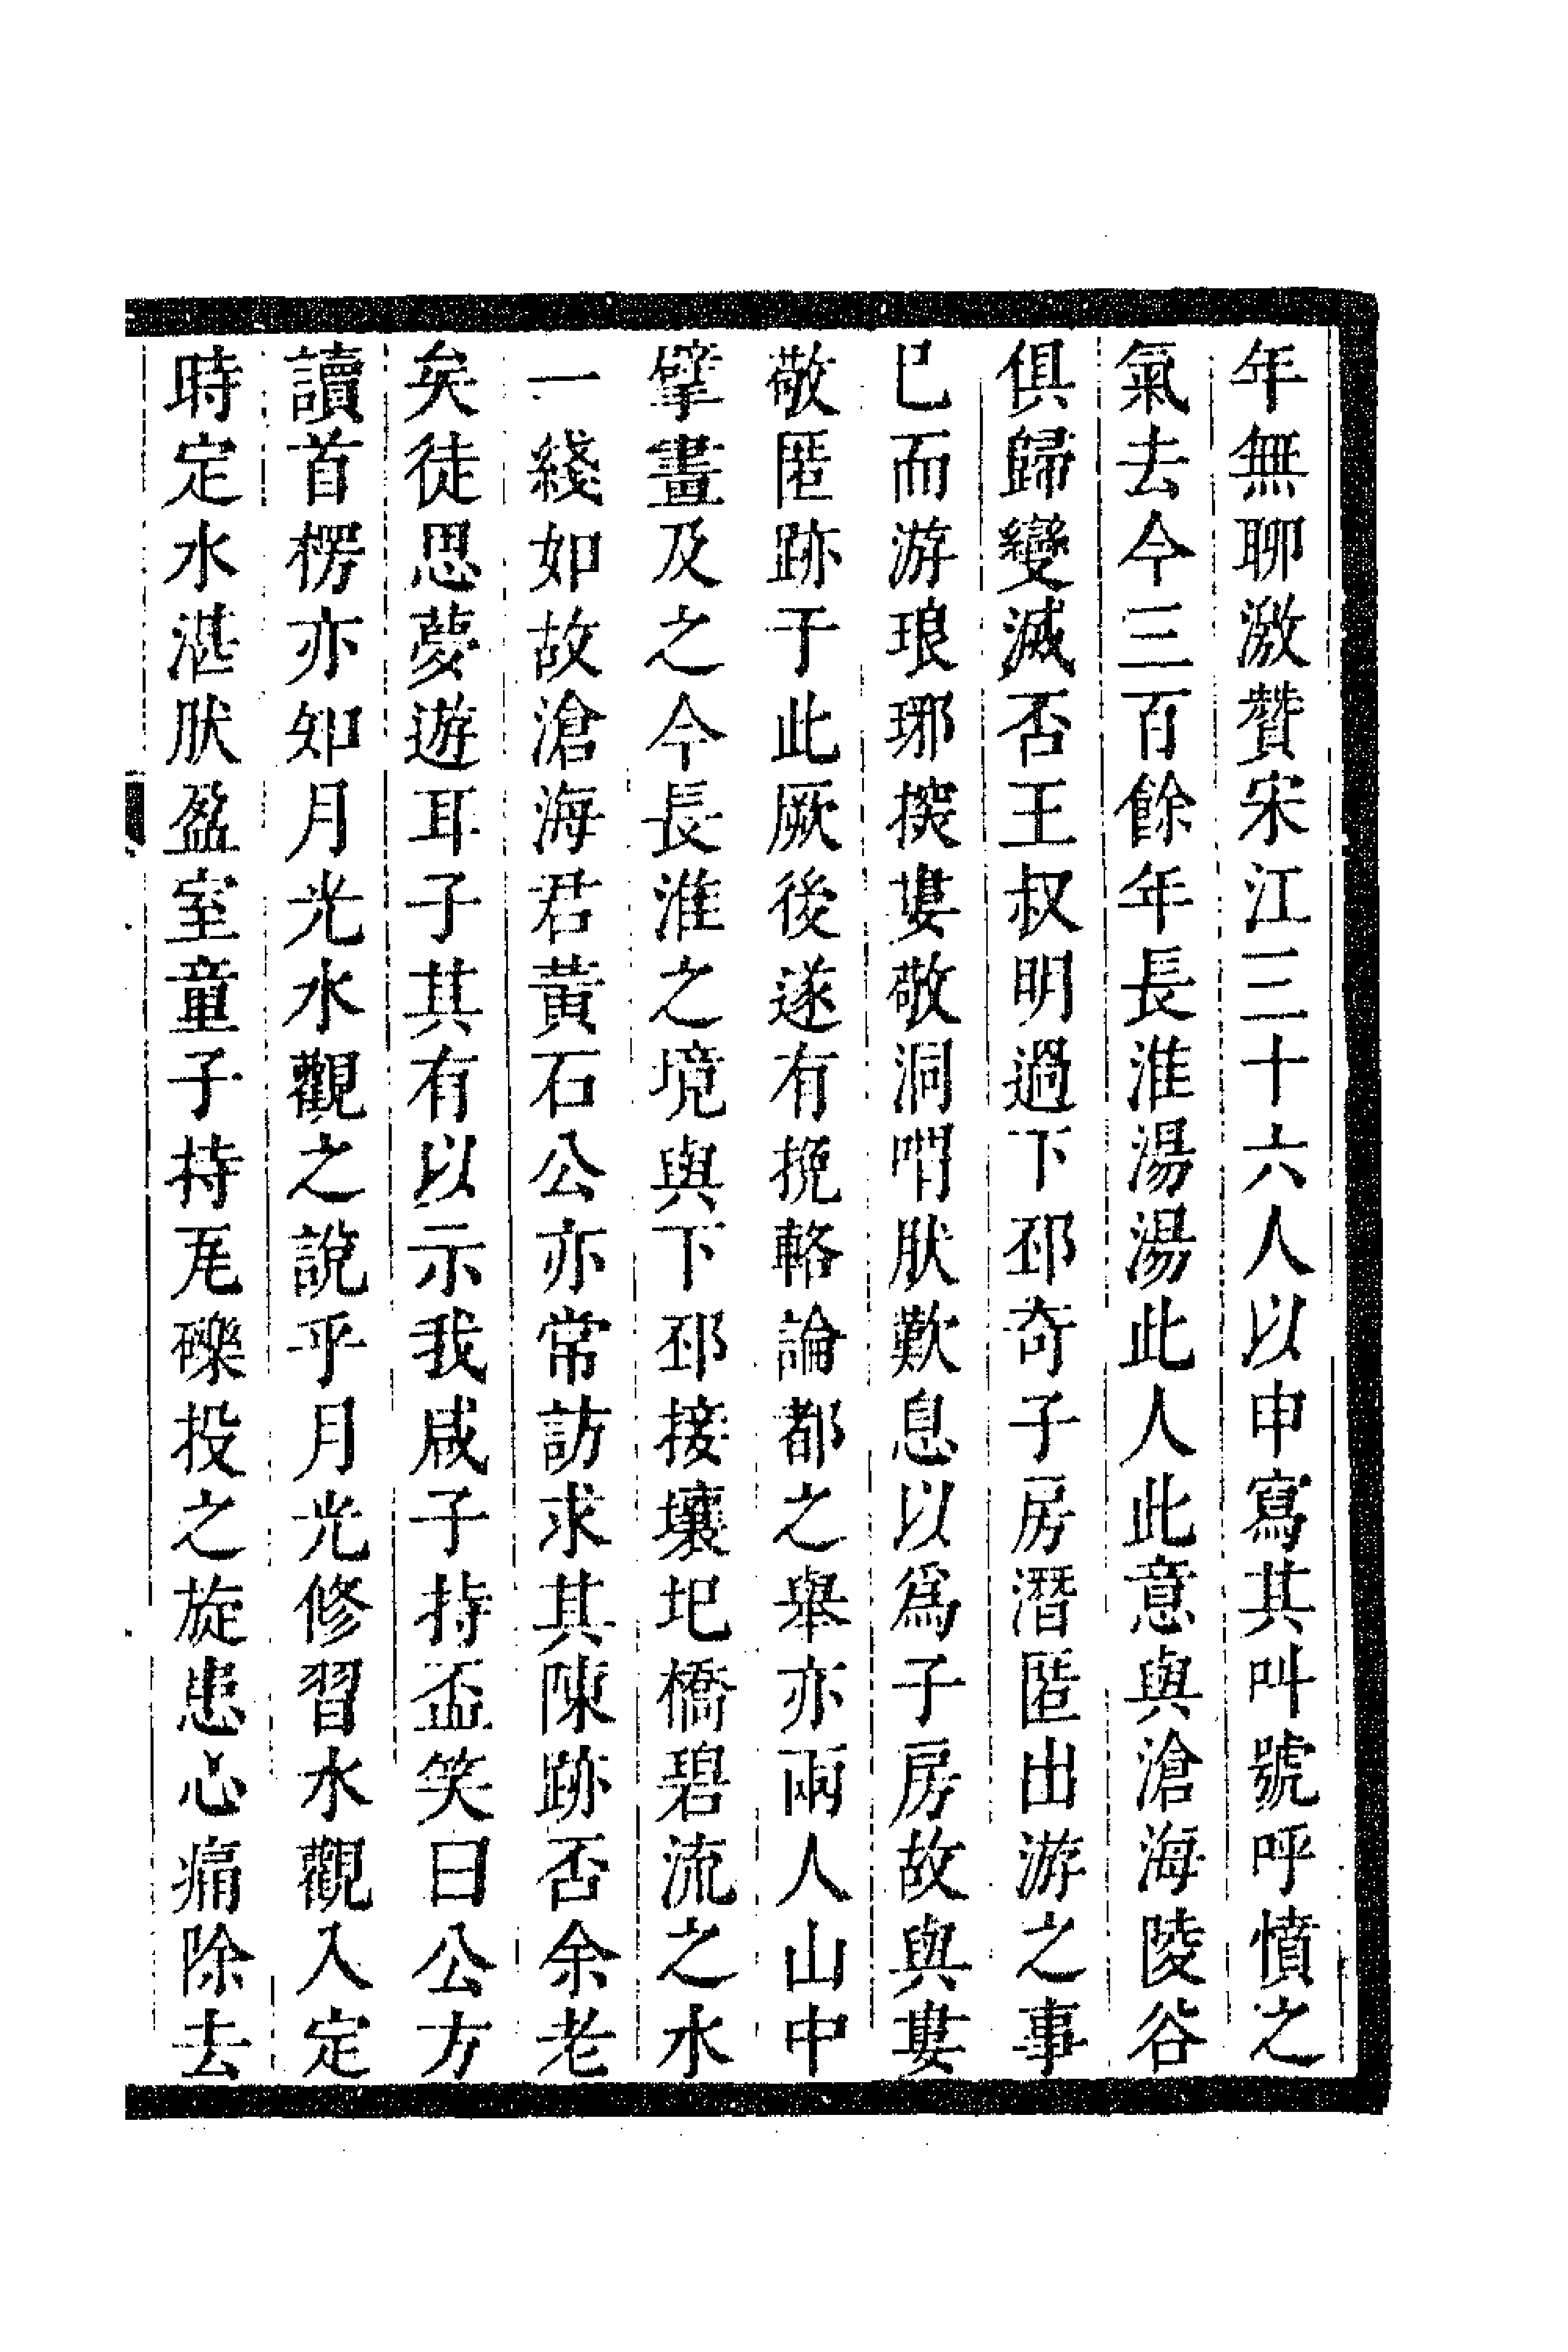 年無聊激贊宋江三十六人以申寫其叫號呼憤之
氣去今三百餘年長淮湯湯此人此意與滄海陵谷
俱歸變滅否王叔明過下邳奇子房潛匿出游之事
已而游琅琊搩婁敬洞喟肰歎息以爲子房故與婁
敬匿跡于此厥後遂有挽輅論都之舉亦兩人山中
擘畫及之今長淮之境與下邳接壤圯橋碧流之水
一綫如故滄海君黃石公亦常訪求其陳跡否余老
矣徒思夢遊耳子其有以示我咸子持盃笑曰公方
讀首楞亦知月光水觀之說乎月光修習水觀入定
時定水湛肰盈室童子持瓦礫投之旋患心痛除去